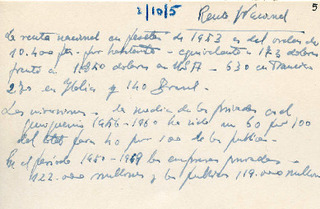 2/10/5 Renta Nacional 5
La renta nacional en pesetas de 1953 es del orden de
10.400 pts. por habitante - equivalente a 173 dolares
frente a 1.850 dolares en USA - 630 en Francia
270 en Italia y 140 Brasil.
Las inversiones - la media de las privadas en el
quinquenio 1956-1960 ha sido un 60 por 100
del total para 40 por 100 de las publicas.
En el periodo 1950-1969 las empresas privadas -
122.000 millones y las publicas 119.000 millones